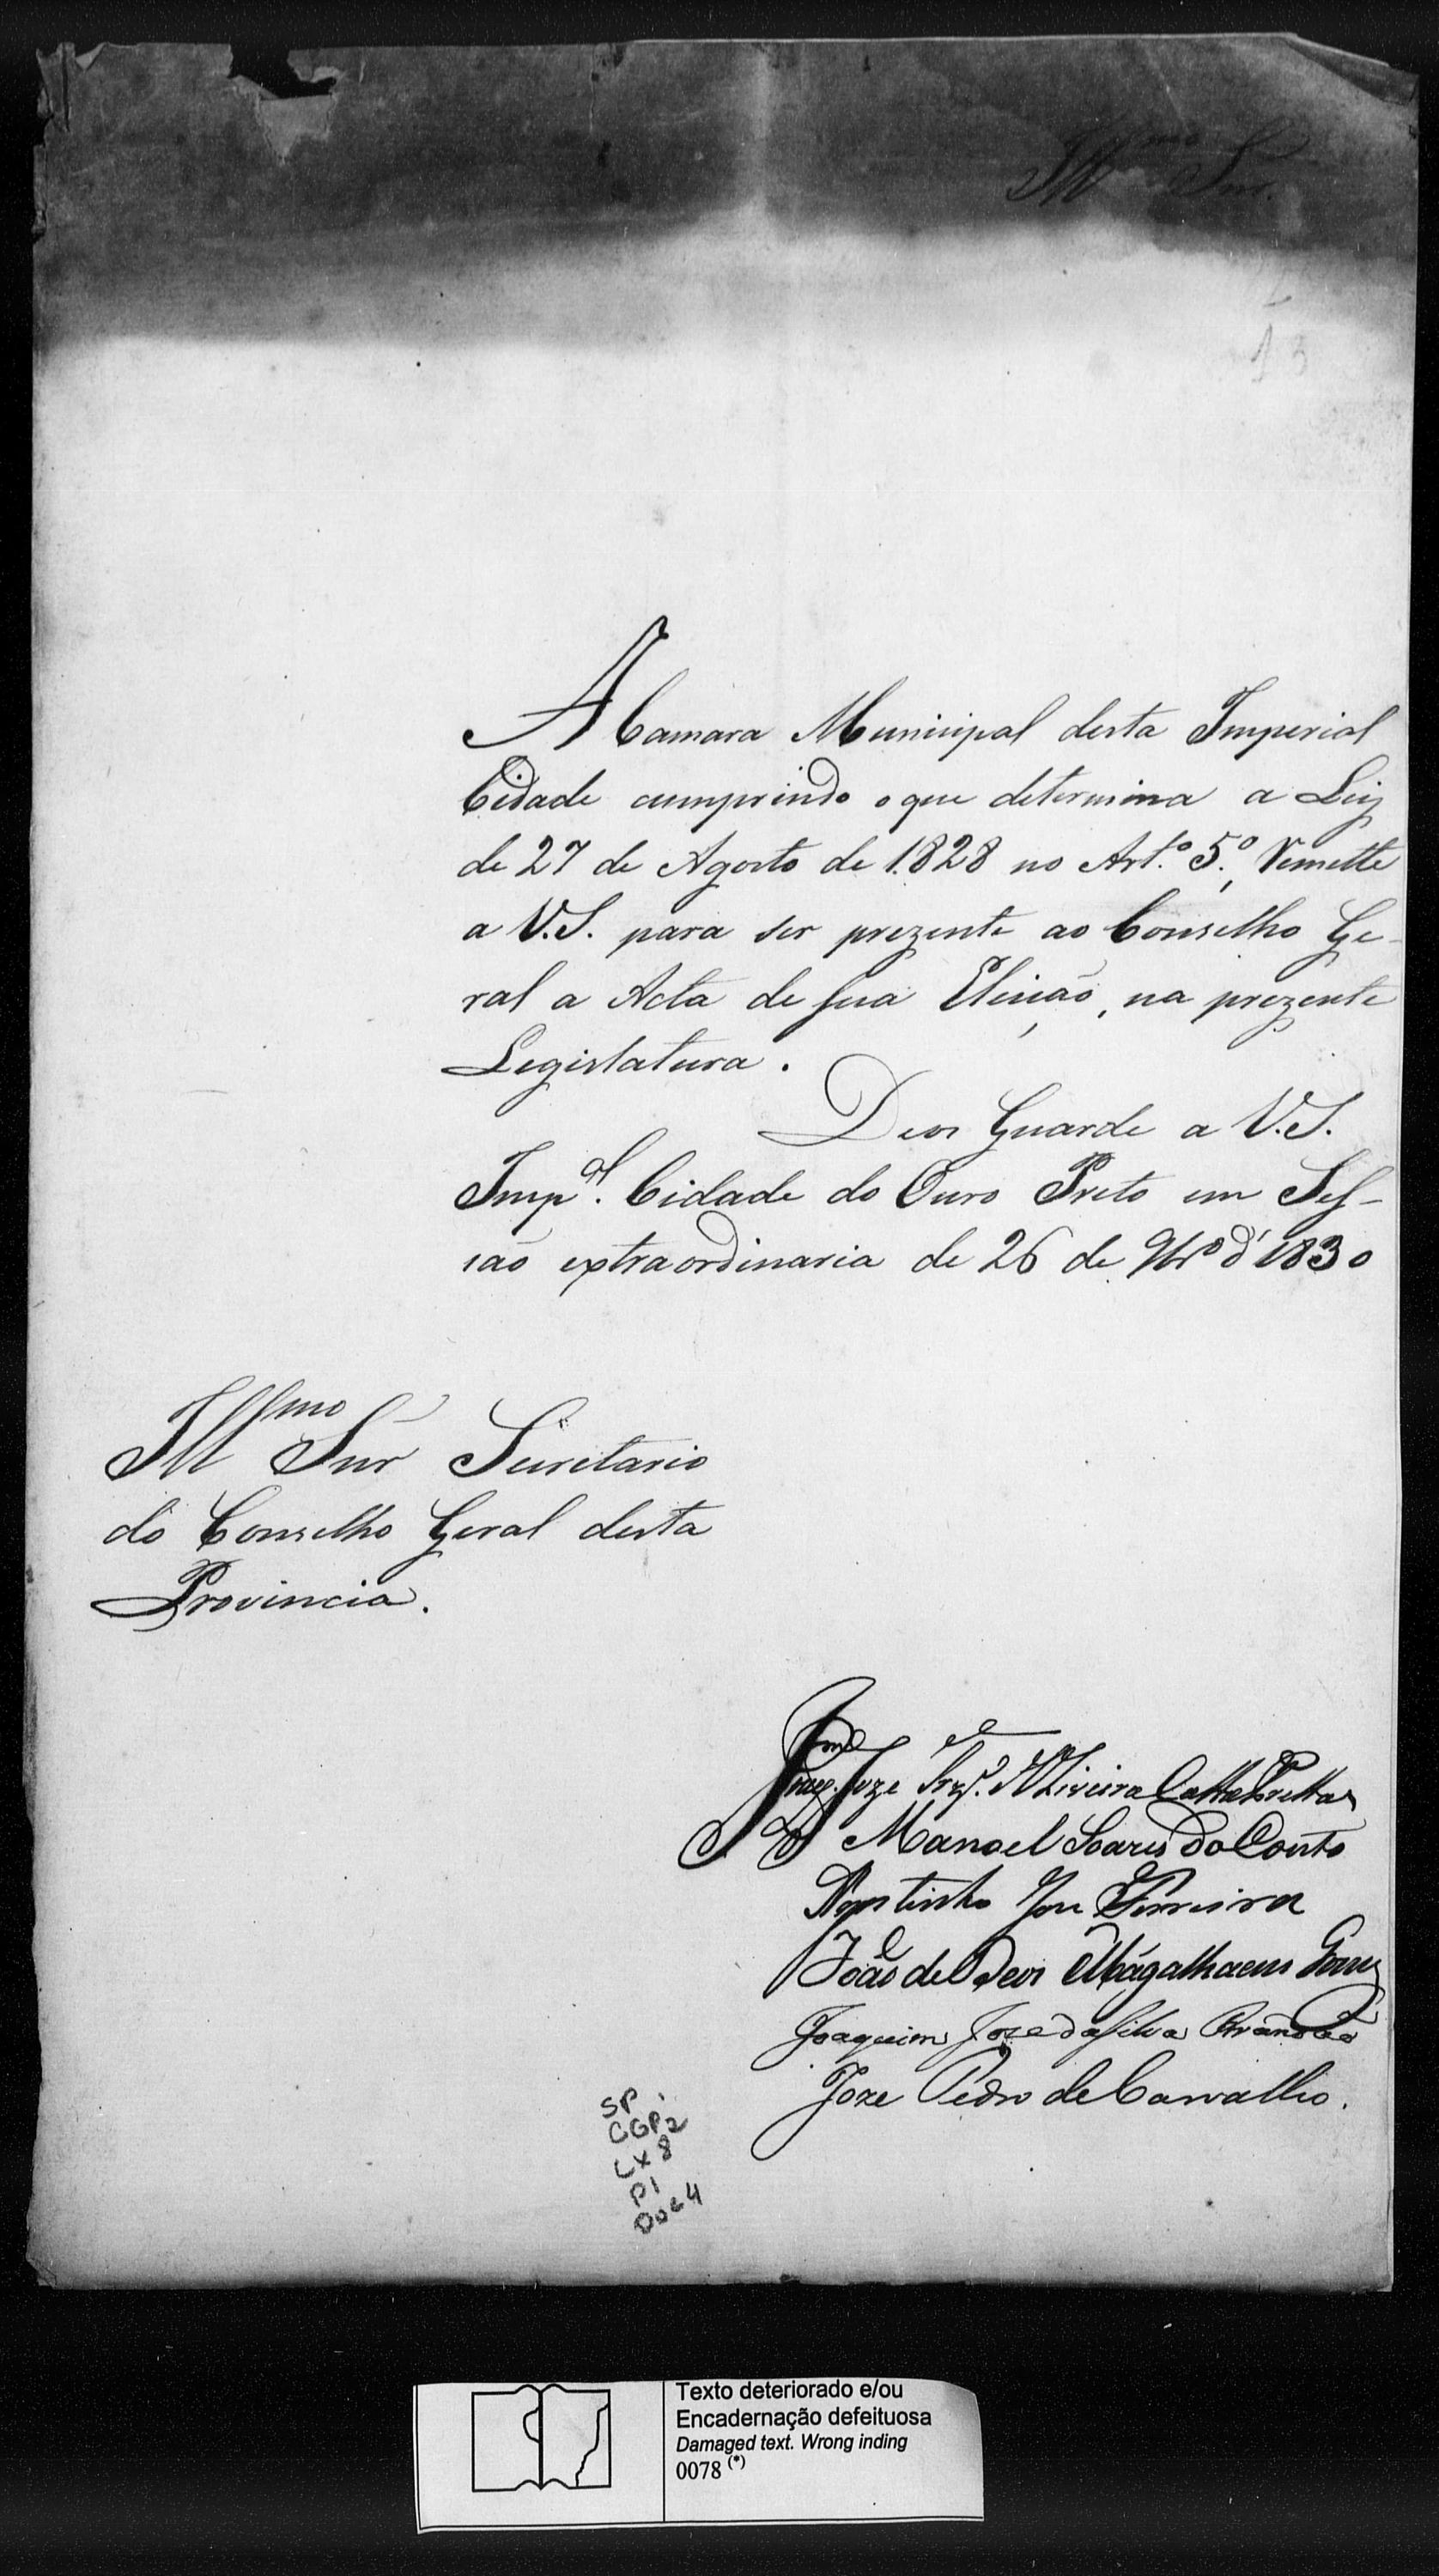 Ill.mo Snr.
A Camara Municipal desta Imperial
Cidade cumprindo o que determina a Ley
de 27 de Agosto de 1828 no Art.º 5.º, Remette
a V.S. para ser prezente ao Conselho Ge-
ral a Acta de sua Eleição, na prezente
Legislatura.
Deos Guarde a V.S.
Imp.al Cidade do Ouro Preto em Ses-
são extraordinaria de 26 de 9br.o d' 1830
Ill.mo Snr Secretario
do Conselho Geral desta
Provincia.
Joze Oliveira Cattapretta
Manoel Soares do Couto
Agostinho Joze Ferreira
João de Deos Magalhaens Gomes
Joaquim Joze da Silva Brandão
Joze Pedro de Carvalho.
SP
CGP2
CX 8
P1
Doc 4
Texto deteriorado e/ou
Encadernação defeituosa
Damaged text. Wrong inding
0078 (*)